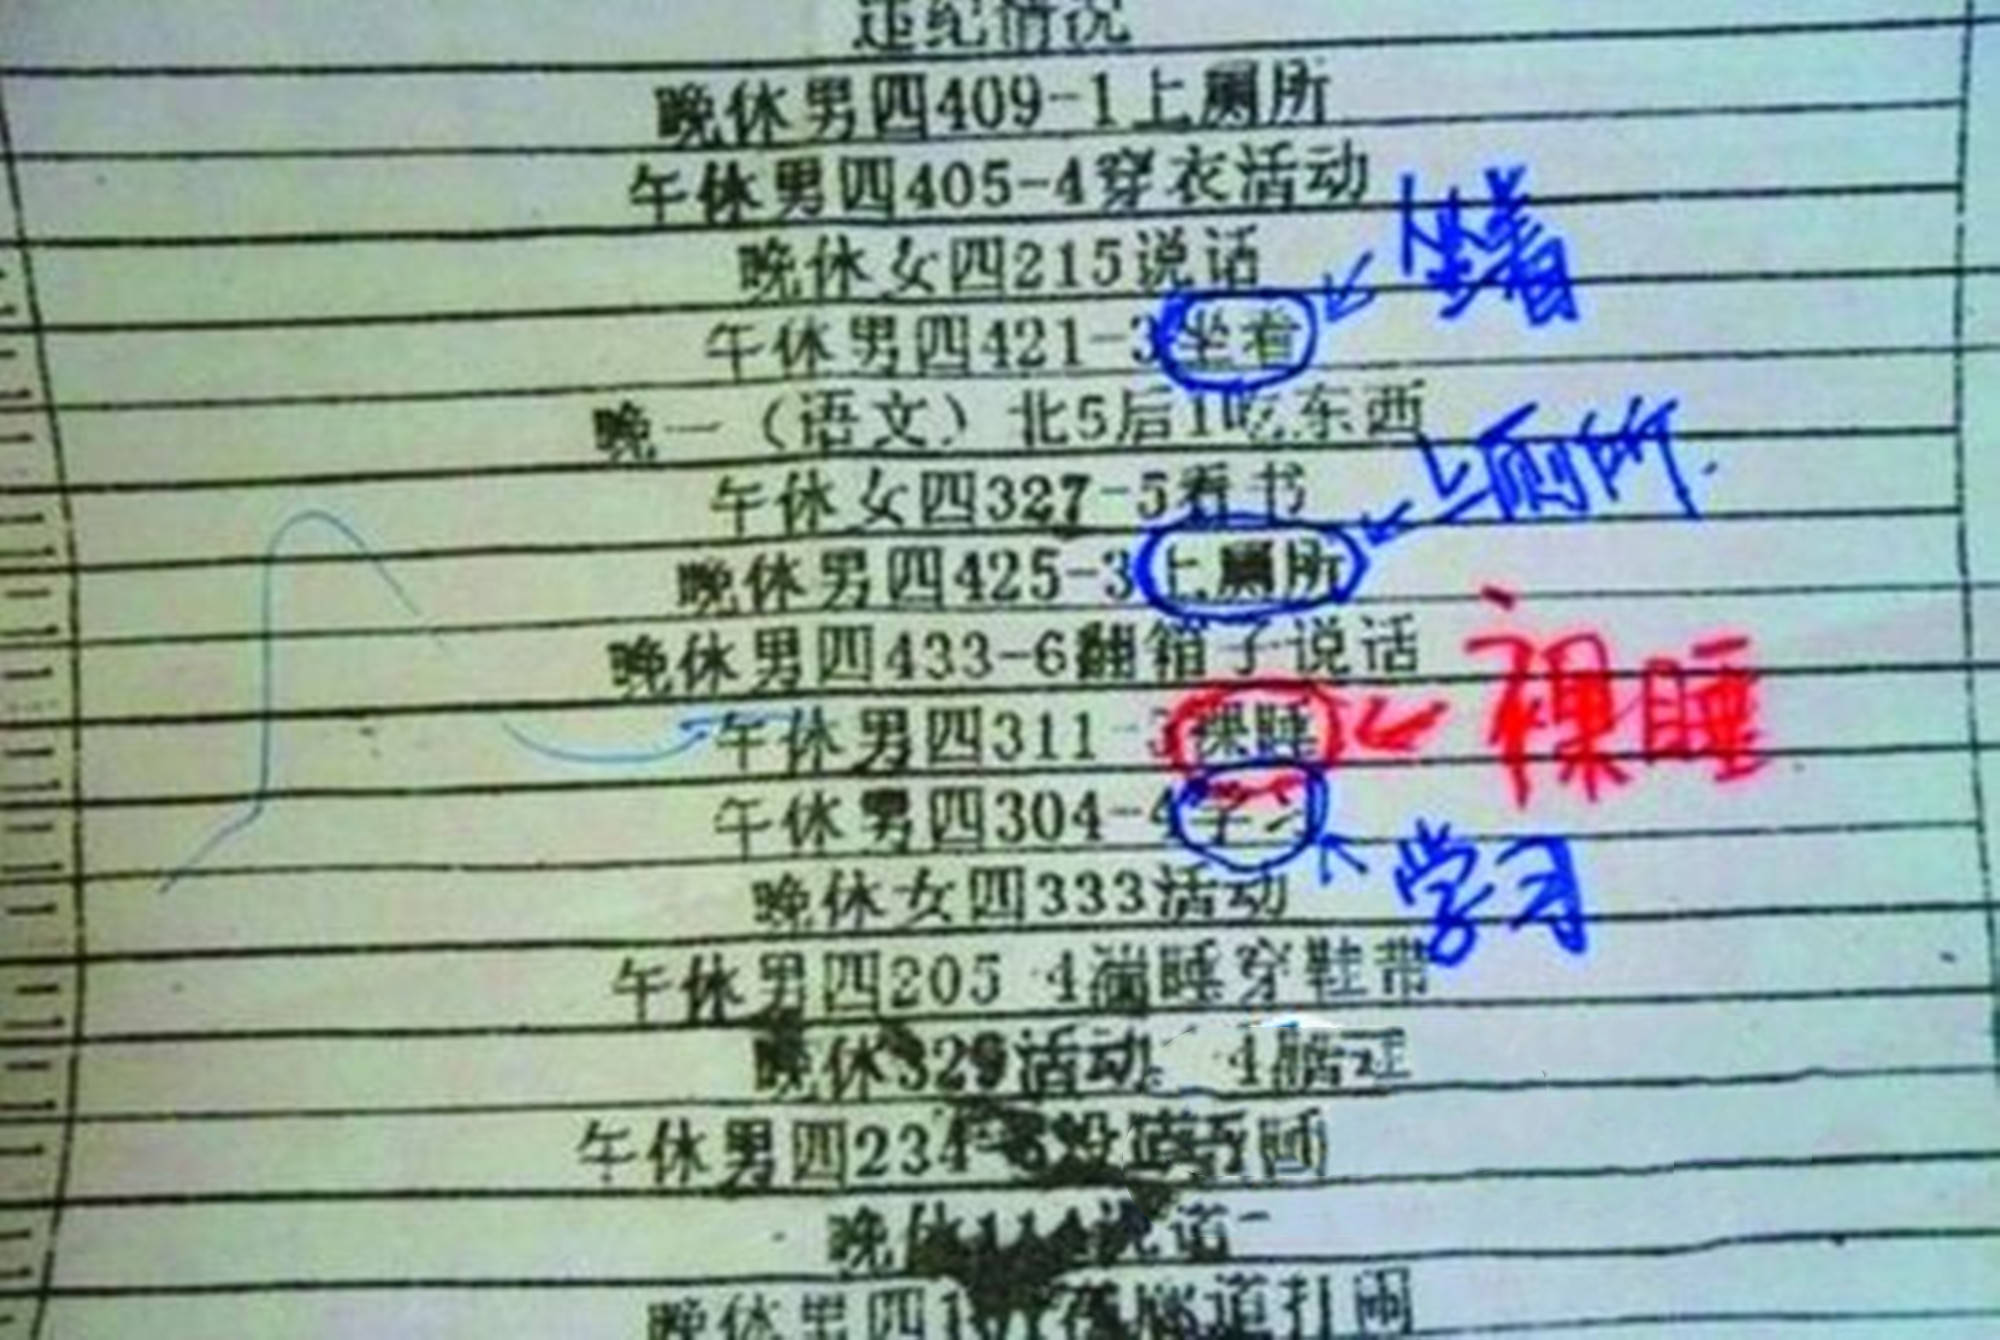 违纪情况
晚休男四409-1上厕所
午休男四405-4穿衣活动
晚休女四215说话
坐着
午休男四421-3坐着
晚一（语文）北5后1吃东西
午休女四327-5看书
上厕所
晚休男四425-3上厕所
晚休男四433-6翻箱子说话
午休男四311-3裸睡
裸睡
午休男四304-4学习
学习
晚休女四333活动
午休男四205-4 睡穿鞋带
晚休329活动
午休男四234
晚休
晚休男四 打闹